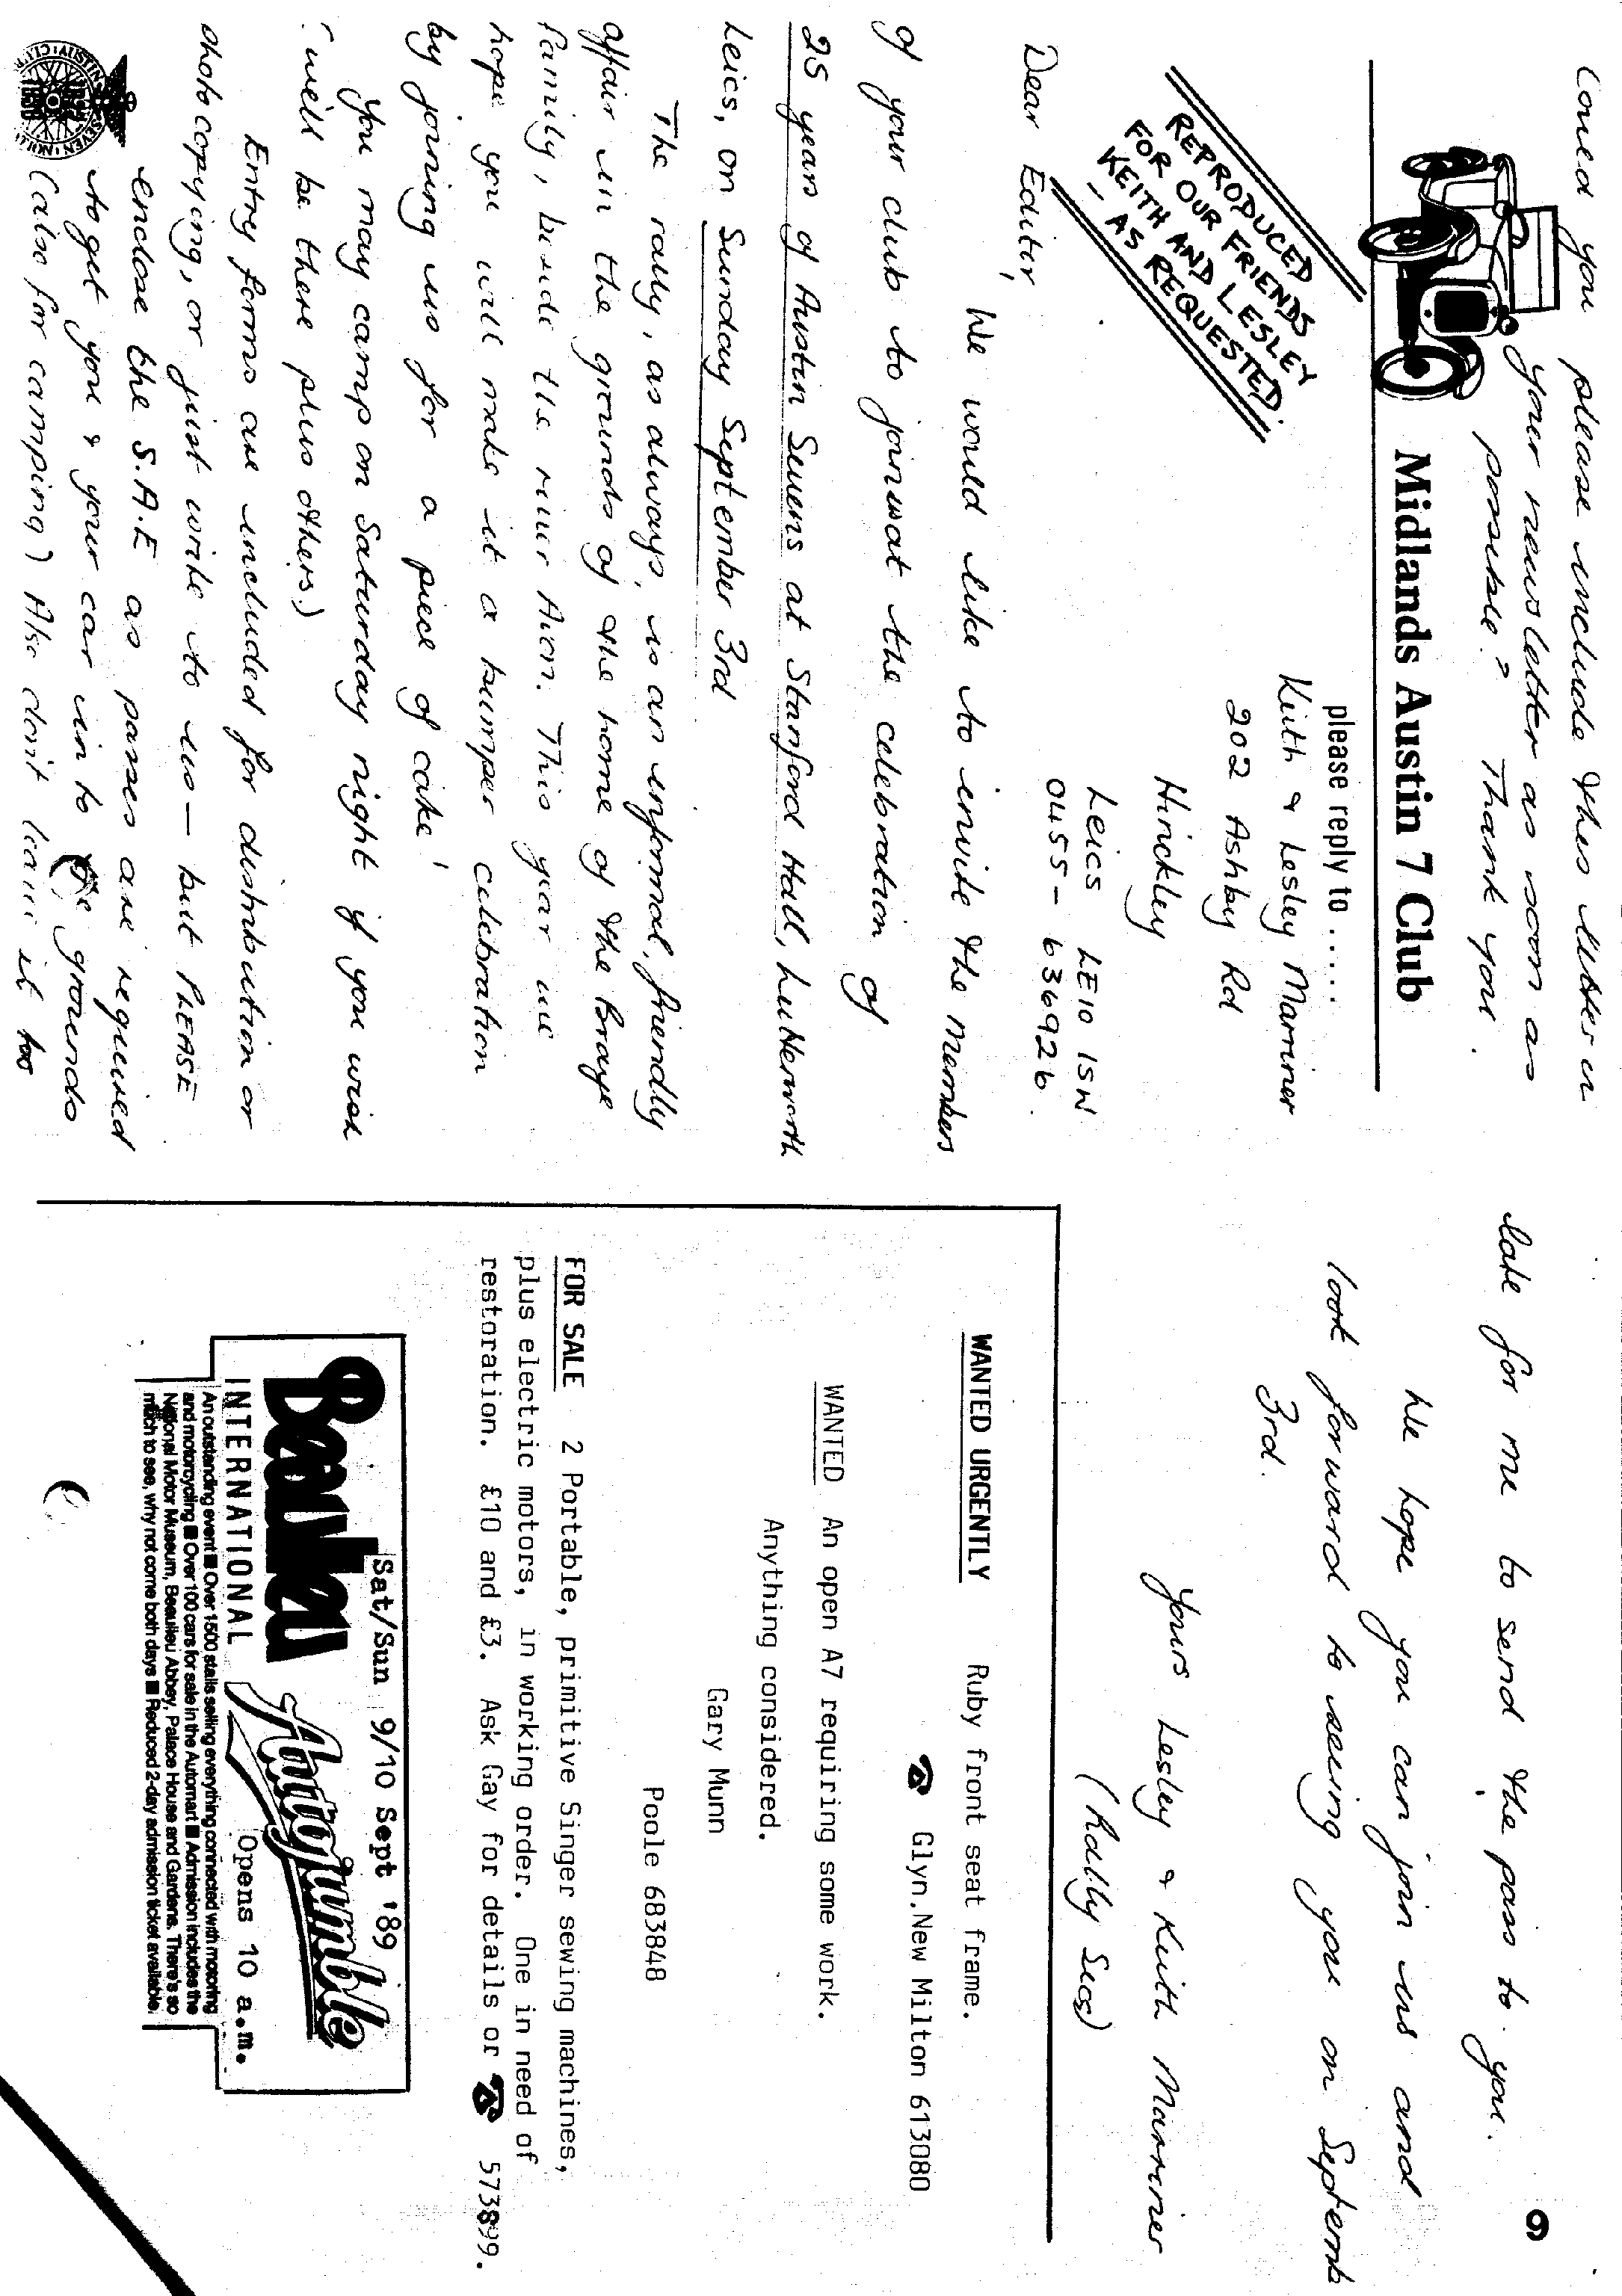 Could you please include this letter in
your newsletter as soon as
possible? Thank you.
Midlands Austin 7 Club
please reply to.....
Keith & Lesley Marriner
202 Ashby Rd
Hinckley
Leics LE10 1SW
0455-636926.
REPRODUCED
FOR OUR FRIENDS
KEITH AND LESLEY
- AS REQUESTED.
Dear Editor,
We would like to invite the members
of your club to join us at the celebration of
25 years of Austin Sevens at Stanford Hall, Lutterworth
Leics, on Sunday September 3rd
The rally, as always, is an informal, friendly
affair in the grounds of the home of the Braye
family, beside the river Avon. This year we
hope you will make it a bumper celebration
by joining us for a piece of cake!
You may camp on Saturday night if you wish
(we'll be there plus others)
Entry forms are included for distribution or
photocopying, or just write to us - but PLEASE
enclose the S.A.E as passes are required
to get you & your car in to the grounds
(also for camping) Also don't leave it too
late for me to send the pass to you.
We hope you can join us and
look forward to seeing you on September
3rd.
Yours Lesley & Keith Marriner
(Rally Secs)
WANTED URGENTLY Ruby front seat frame.
☎ Glyn. New Milton 613080
WANTED An open A7 requiring some work.
Anything considered.
Gary Munn
Poole 683848
FOR SALE 2 Portable, primitive Singer sewing machines,
plus electric motors, in working order. One in need of
restoration. £10 and £3. Ask Gay for details or ☎ 573899.
Sat/Sun 9/10 Sept '89
Beaulieu Autojumble
INTERNATIONAL Opens 10 a.m.
An outstanding event ■ Over 1500 stalls selling everything connected with motoring
and motorcycling ■ Over 100 cars for sale in the Automart ■ Admission includes the
National Motor Museum, Beaulieu Abbey, Palace House and Gardens. There's so
much to see, why not come both days ■ Reduced 2-day admission ticket available.
9